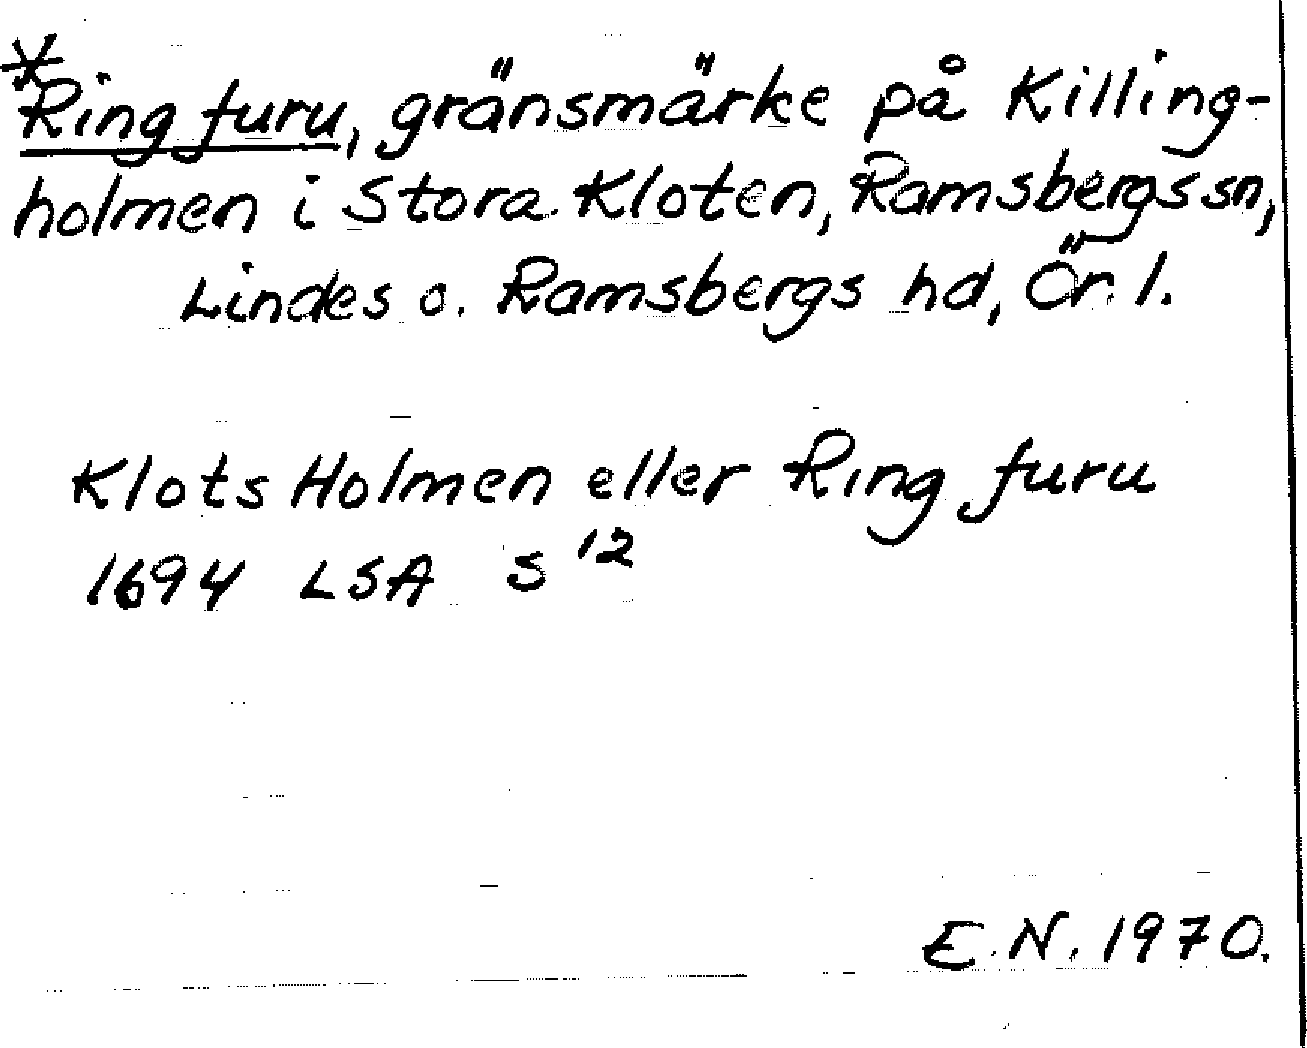 *Ring furu, gränsmärke på Killing-
holmen i Stora Kloten, Ramsbergs sn,
Lindes o. Ramsbergs hd, Ör. l.
Klots Holmen eller Ring furu
1694 LSA S 12
E.N. 1970.